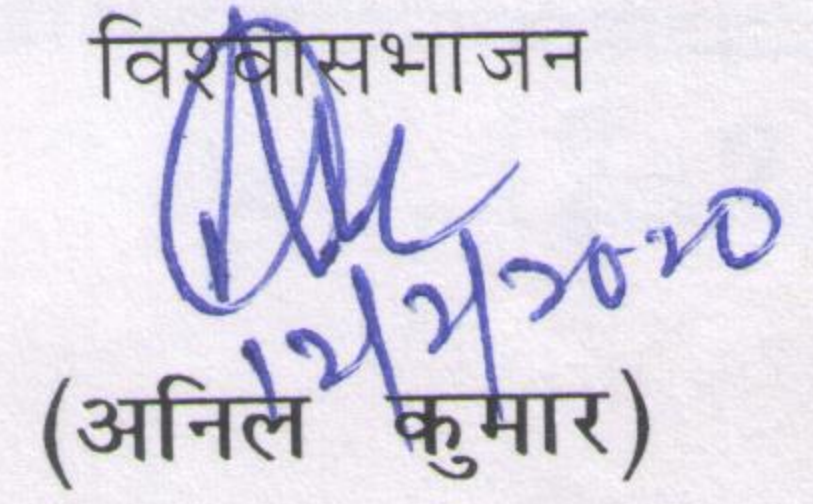 विश्वासभाजन
12/2/2020
(अनिल कुमार)